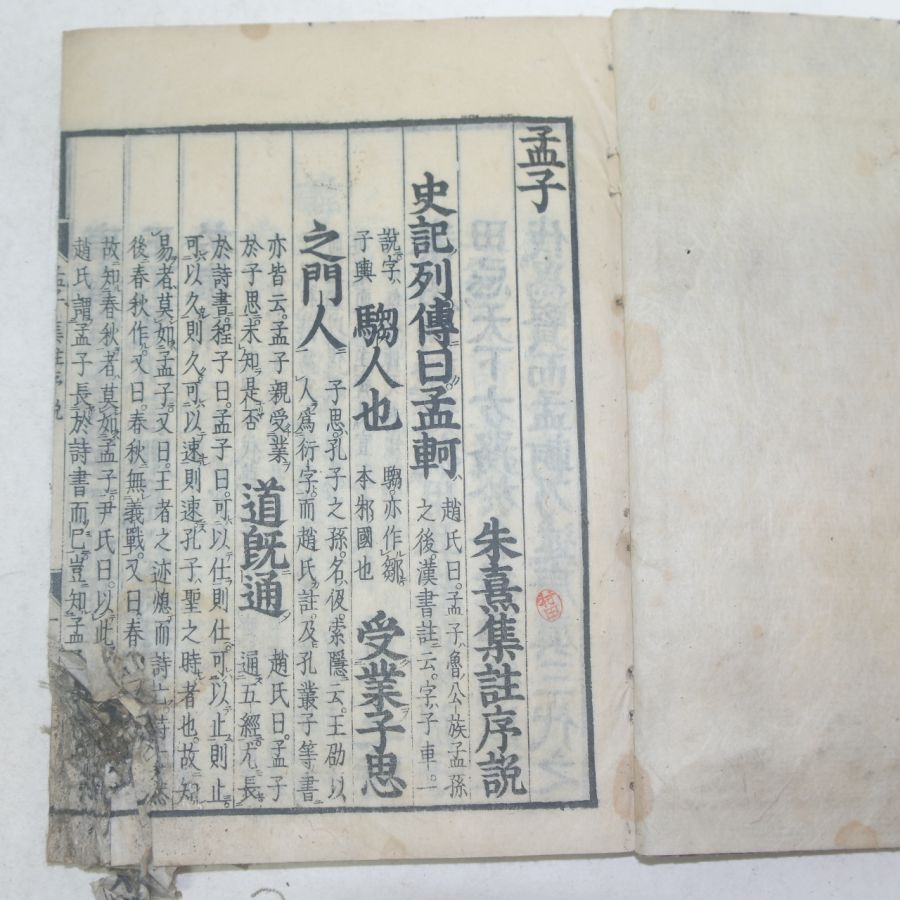 孟子
朱熹集註序説
史記列傳曰孟軻
趙氏曰。孟子。魯公族孟孫
之後。漢書註云。字子車。一
説。字
子輿
騶人也
騶。亦作鄒。
本邾國也
受業子思
之門人
子思。孔子之孫。名伋。索隱云。王劭以
人爲衍字。而趙氏註。及孔叢子等書
亦皆云。孟子親受業
於子思。未知是否
道既通
趙氏曰。孟子
通五經。尤長
於詩書。程子曰。孟子曰。可以仕則仕。可以止則止。
可以久則久。可以速則速。孔子聖之時者也。故知
易者。莫如孟子。又曰。王者之迹熄。而詩亡。詩亡然
後春秋作。又曰。春秋無義戰。又曰。春
故知春秋者。莫如孟子。尹氏曰。以此
趙氏謂孟子長於詩書而已。豈知孟
孟子 集註序説